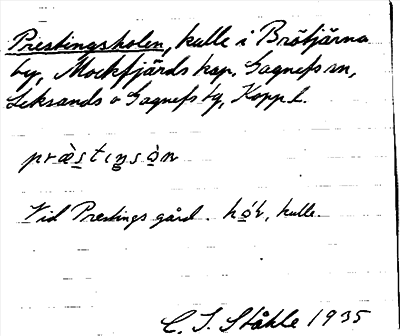 Prestingsholen, kulle i Bröttjärna
by, Mockfjärds kap. Gagnefs sn,
Leksands o Gagnefs tg, Kopp l.
præstıŋsòn
Vid Prestings gård. hól, kulle.
C. I. Ståhle 1935